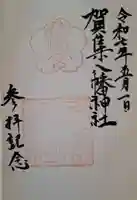 令和七年五月一日
賀集八幡神社
参拝記念